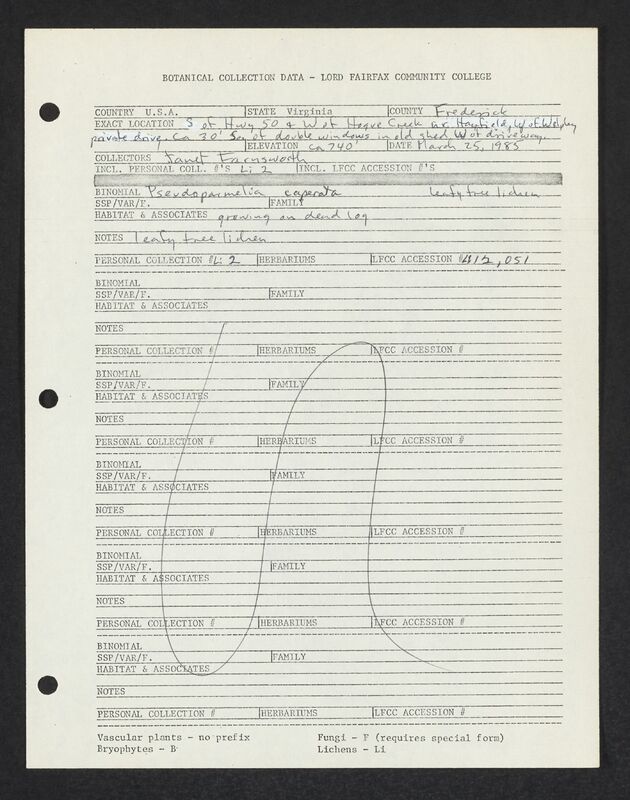 BOTANICAL COLLECTION DATA - LORD FAIRFAX COMMUNITY COLLEGE
COUNTRY U.S.A. STATE Virginia COUNTY Frederick
EXACT LOCATION S of Hwy 50 & W of Hogue Creek nr Hayfield, W of
private drive. Ca 30' S of double windows in old shed W of driveway.
ELEVATION ca 740' DATE March 25, 1985
COLLECTORS Janet Farnsworth
INCL. PERSONAL COLL. #'S Li 2 INCL. LFCC ACCESSION #'S
BINOMIAL Pseudoparmelia caperata leafy tree lichen
SSP/VAR/F. FAMILY
HABITAT & ASSOCIATES growing on dead log
NOTES leafy tree lichen
PERSONAL COLLECTION # Li 2 HERBARIUMS LFCC ACCESSION # 412,051
BINOMIAL
SSP/VAR/F. FAMILY
HABITAT & ASSOCIATES
NOTES
PERSONAL COLLECTION # HERBARIUMS LFCC ACCESSION #
BINOMIAL
SSP/VAR/F. FAMILY
HABITAT & ASSOCIATES
NOTES
PERSONAL COLLECTION # HERBARIUMS LFCC ACCESSION #
BINOMIAL
SSP/VAR/F. FAMILY
HABITAT & ASSOCIATES
NOTES
PERSONAL COLLECTION # HERBARIUMS LFCC ACCESSION #
BINOMIAL
SSP/VAR/F. FAMILY
HABITAT & ASSOCIATES
NOTES
PERSONAL COLLECTION # HERBARIUMS LFCC ACCESSION #
BINOMIAL
SSP/VAR/F. FAMILY
HABITAT & ASSOCIATES
NOTES
PERSONAL COLLECTION # HERBARIUMS LFCC ACCESSION #
Vascular plants - no prefix Fungi - F (requires special form)
Bryophytes - B Lichens - Li